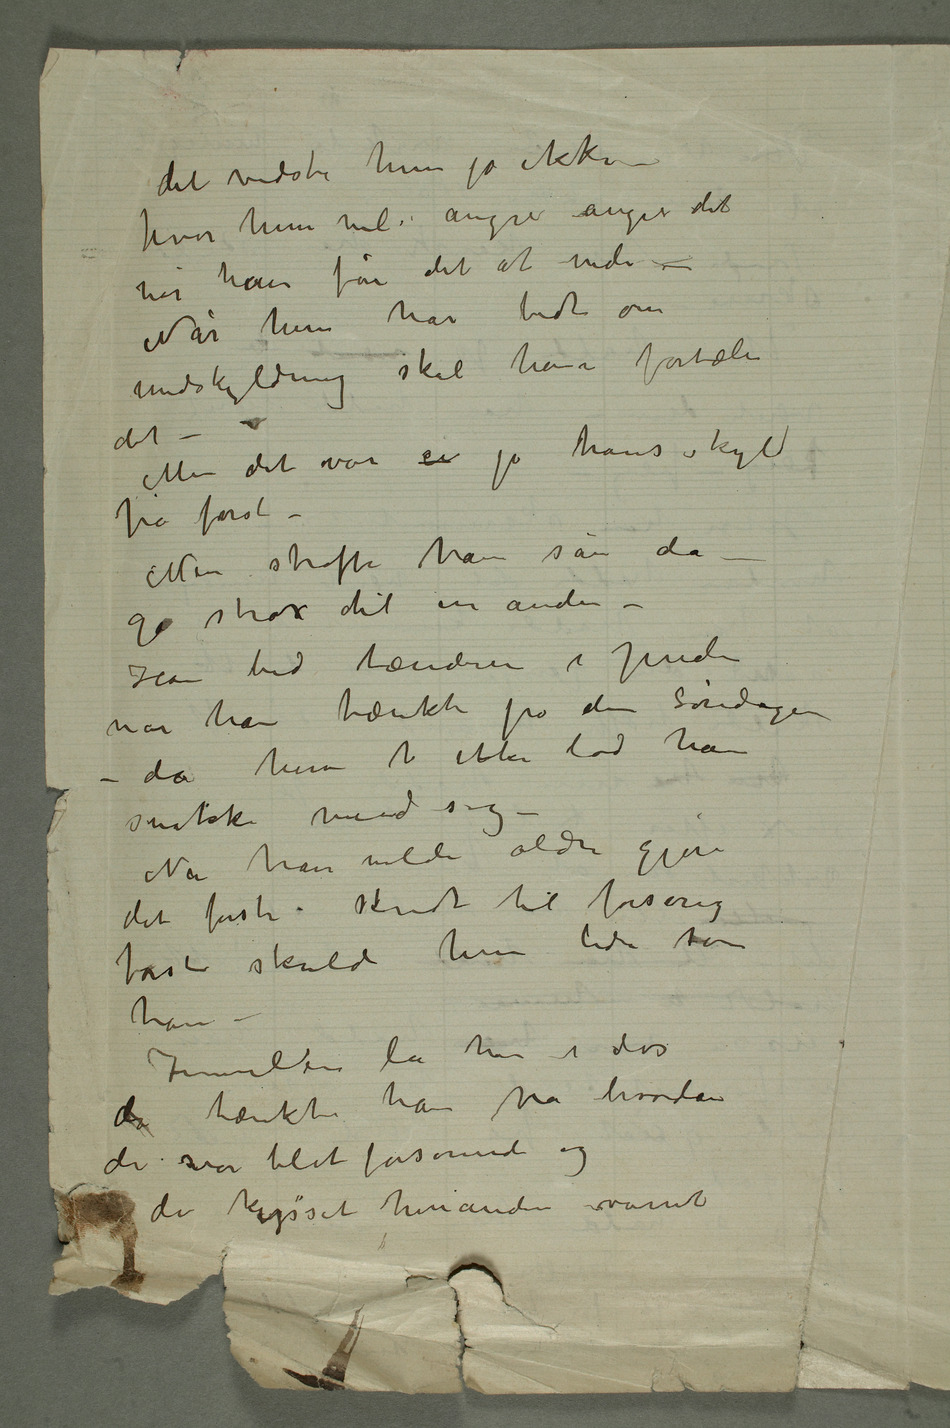 det vidste hun jo ikke –
hvor hun vil angre angre det
når han får det at vide –
Når hun har bedt om
undskyldning skal han fortælle
det –
Men det var jo hans skyld
fra først –
Men straffe ham sån da –
gå strax til en anden –
Han bed tænderne i puden
når han tænkte på den Søndagen
– da hun ikke lod ham
snakke med sig –
Nei han vilde aldri gjøre
det første Skridt til forsoning
først skulde hun lide som
han –
Imellem lå han i døs
da tænkte han på hvordan
de var blet forsonede og
de kysset hinanden varmt